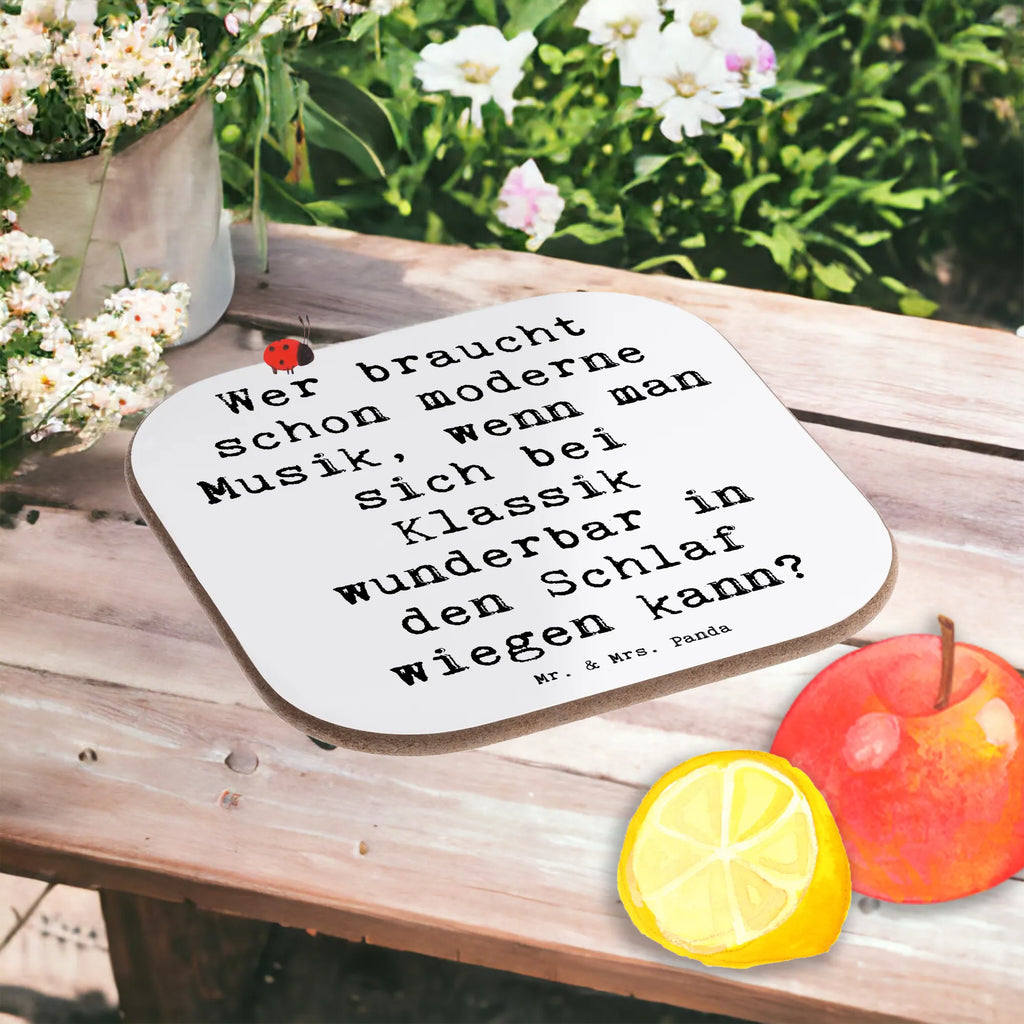 Wer braucht
schon moderne
Musik, wenn man
sich bei
Klassik
wunderbar in
den Schlaf
wiegen kann?
Mr. & Mrs. Panda